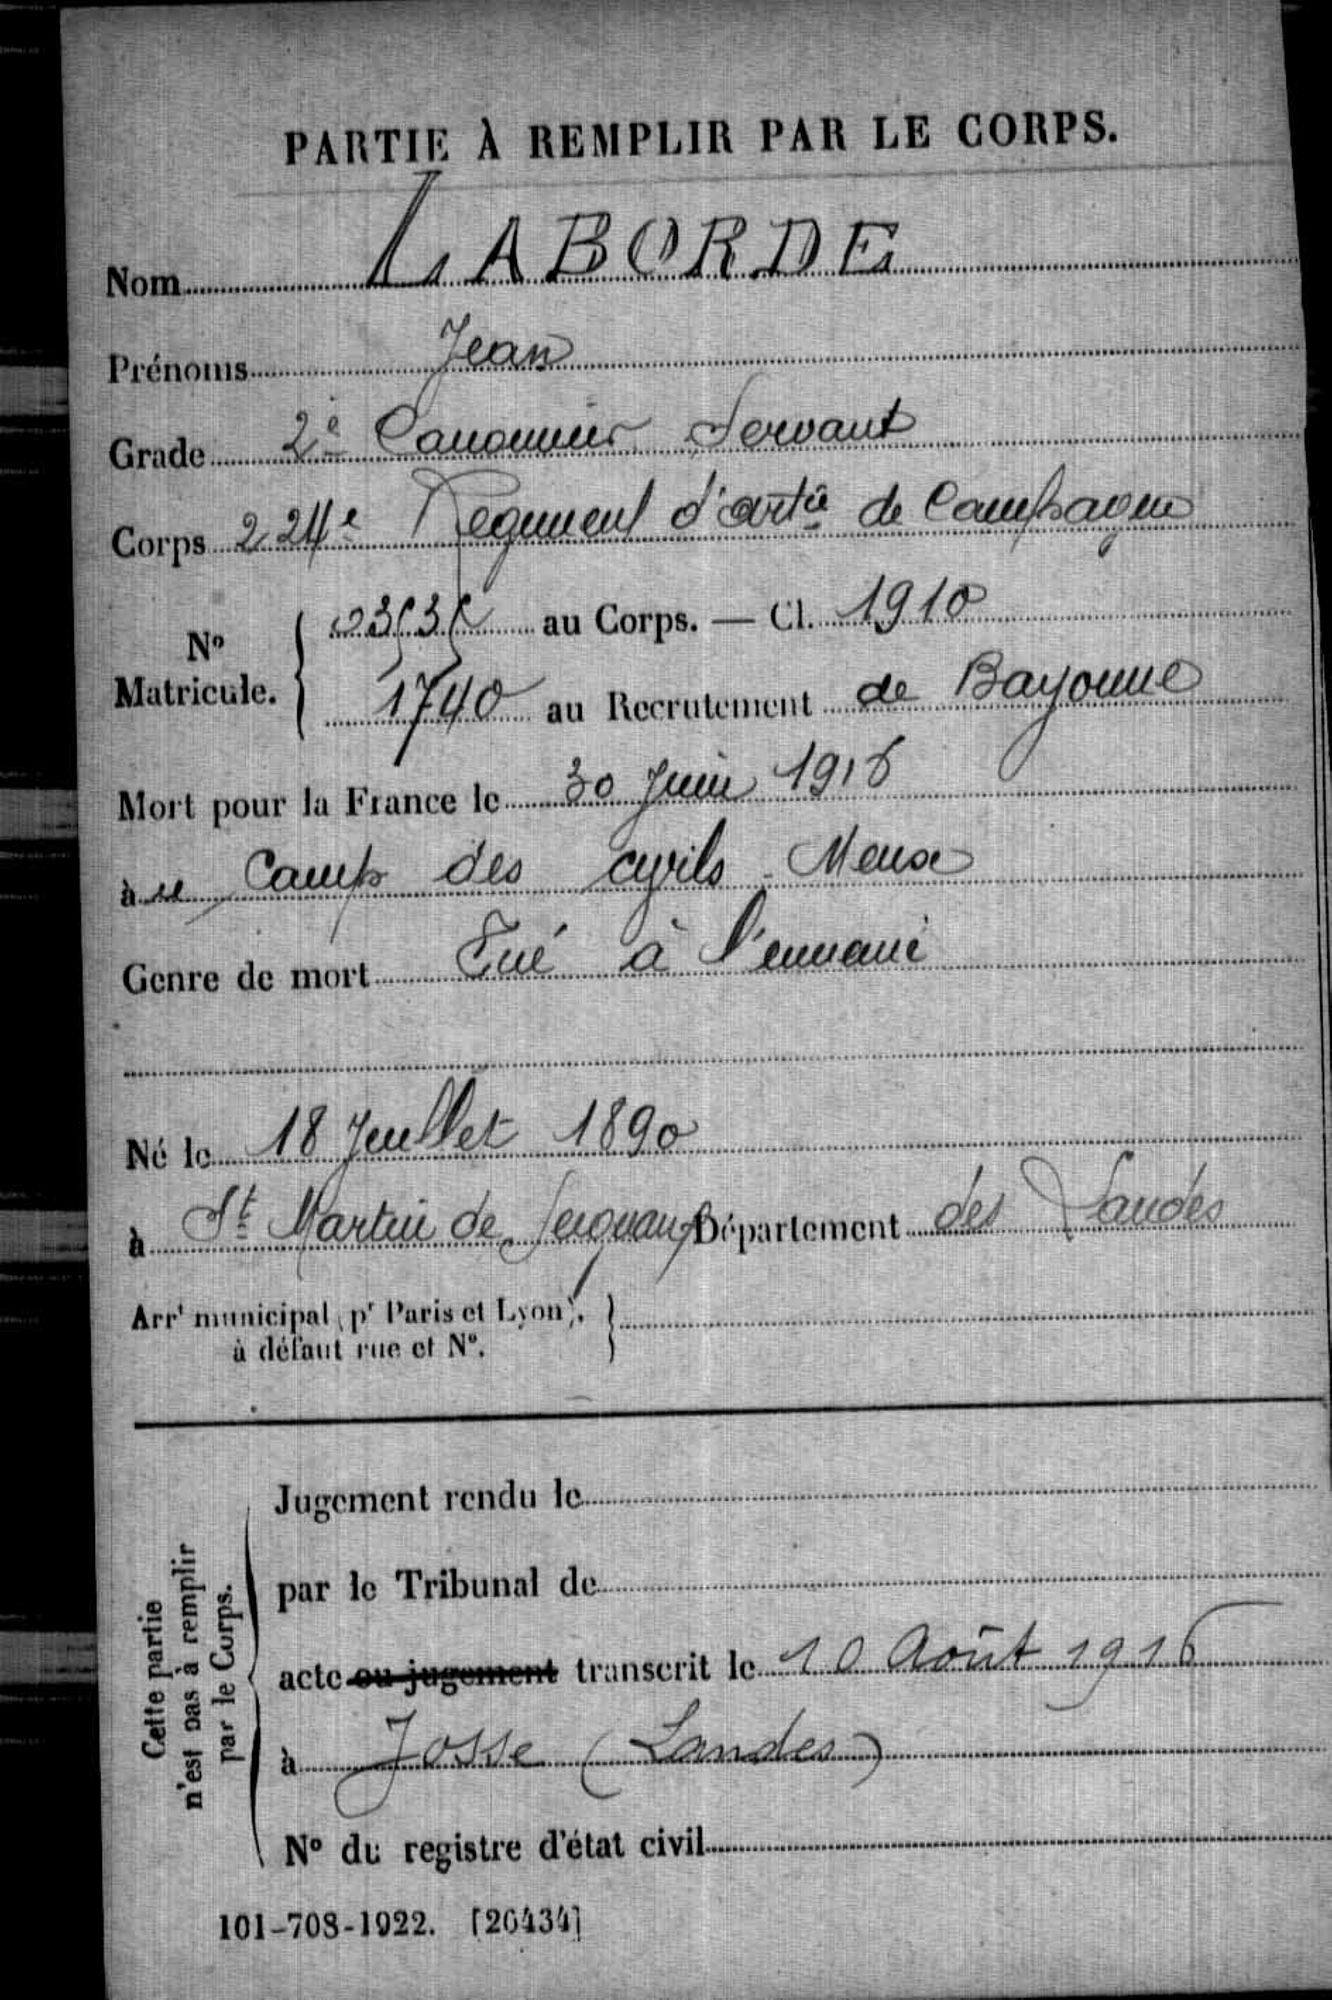 PARTIE À REMPLIR PAR LE CORPS.
Nom LABORDE
Prénoms Jean
Grade 2e Canonnier Servant
Corps 224e Regiment d'artie de Campagne
No Matricule. { au Corps. — Cl. 1910
1740 au Recrutement de Bayonne
Mort pour la France le 30 Juin 1916
à Camp des cyrils Meuse
Genre de mort Tué à l'ennemi
Né le 18 Juillet 1890
à St Martin de Seignanx Département des Landes
Arrt municipal (pr Paris et Lyon), }
à défaut rue et No.
Cette partie
n'est pas à remplir
par le Corps.
Jugement rendu le
par le Tribunal de
acte ou jugement transcrit le 10 Août 1916
à Josse (Landes)
No du registre d'état civil
101-708-1922. [26434]